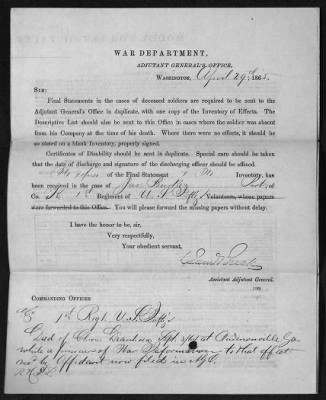 WAR DEPARTMENT,
ADJUTANT GENERAL'S OFFICE,
WASHINGTON, April 29th 1865.
SIR:
Final Statements in the cases of deceased soldiers are required to be sent to the
Adjutant General's Office in duplicate, with one copy of the Inventory of Effects. The
Descriptive List should also be sent to this Office in cases where the soldier was absent
from his Company at the time of his death. Where there were no effects, it should be
so stated on a blank Inventory, properly signed.
Certificates of Disability should be sent in duplicate. Special care should be taken
that the date of discharge and signature of the discharging officer should be affixed.
No of the Final Statement & No Inventory, has
been received in the case of Jas of
Co. 1st Regiment of U.S. Volunteers, whose papers
were forwarded to this Office. You will please forward the missing papers without delay.
I have the honor to be, sir,
Very respectfully,
Your obedient servant,
Assistant Adjutant General.
COMMANDING OFFICER
1st Regt. U.S.
Died of Chron Diarrhoea Sept at Andersonville Ga
while a prisoner of War. Information to that effect
by Affidavit now filed in